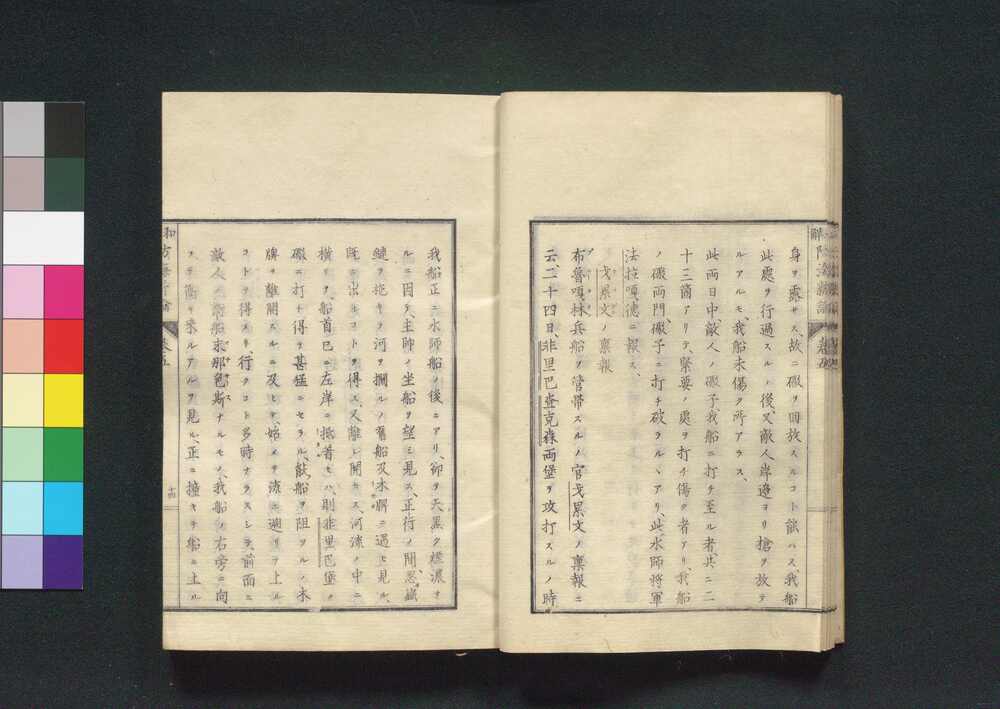 身ヲ露サス、故ニ礮ヲ回放スルコト能ハス、我船
此處ヲ行過スルノ後、又敵人岸邊ヨリ搶ヲ放テ
ルアルモ、我船未傷ク所アラス、
此両日中、敵人ノ礮子我船ニ打チ至ル者、共ニ二
十三箇アリテ、緊要ノ處ヲ打チ傷ク者アリ、我船
ノ礮両門、礮子ニ打チ破ラルヽアリ、此水師将軍
法拉嘎德ニ報ス、
戈累文ノ稟報
布魯嘎林兵船ヲ管帯スルノ官戈累文ノ稟報ニ
云、二十四日、非里巴査克森両堡ヲ攻打スルノ時
我船正ニ水師船ノ後ニアリ、卻ヲ天黒ク煙濃ナ
ルニ因テ、主帥ノ坐船ヲ望ミ見ス、正行ノ間、忽
鏈ヲ拖キテ河ヲ攔ルノ舊船及木牌ニ遇ヒ見ル、
既ニ出ルコトヲ得ス、又離レ開キス、河流ノ中ニ
横リ、船首已ニ左岸ニ抵着セハ、則非里巴堡ノ
礮ニ打チ得テ甚猛ニセラル、敵船ヲ阻ツルノ木
牌ヲ離開スルニ及ヒテ、始メテ流ニ遡リテ上ル
コトヲ得ス、行クコト多時ナラスシテ、前面ニ
敵人ノ
那色斯ナルモノ、我船ノ右旁ニ向
衝リ来ルアルヲ見ル、正ニ撞キテ船ニ上ル
巻五
十四